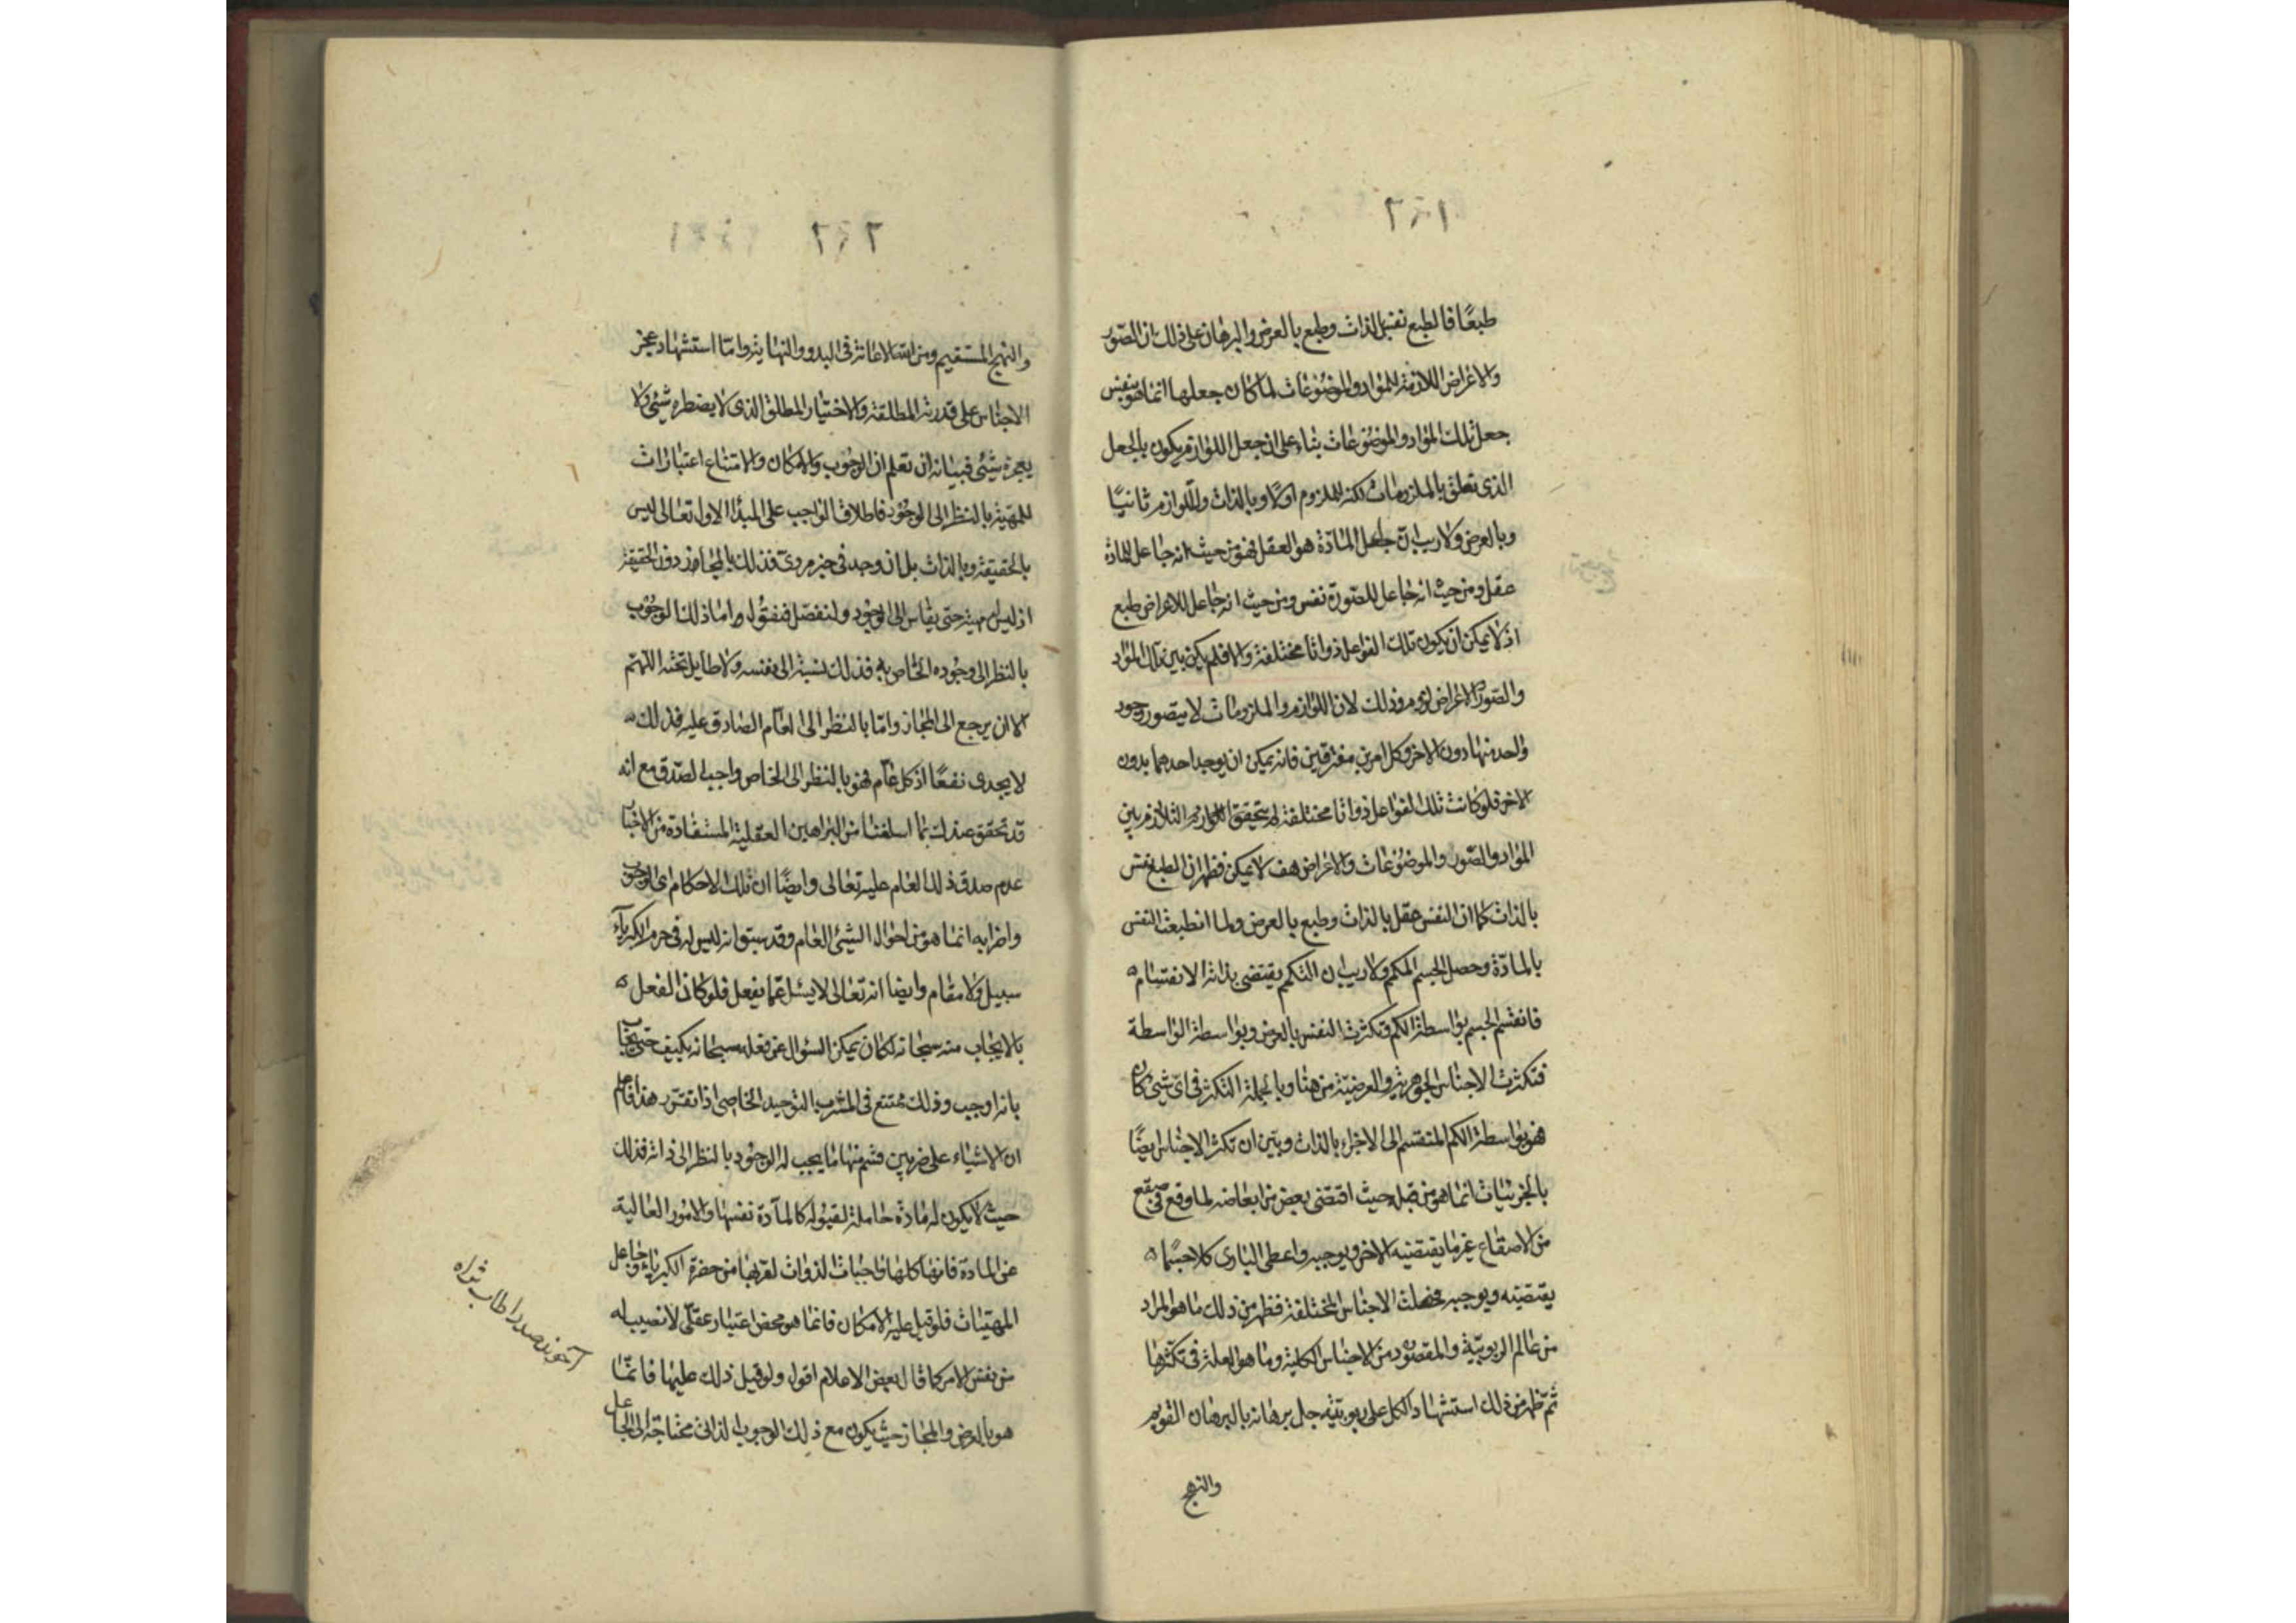 طبعًا فالطبع نفس بالذات وطبع بالعرض والبرهان على ذلك ان الصّور
والاعراض اللازمة للمواد والموضوعات لما كان جعلها انما هو بنفس
جعل تلك المواد والموضوعات بناء على ان جعل اللوازم يكون بالجعل
الذى تعلق بالملزومات لكنه للملزوم اولًا وبالذات وللّوازم ثانيًا
وبالعرض ولا ريب انّ جاعل المادّة هو العقل فهو من حيث انه جاعل للمادة
عقل ومن حيث انه جاعل للصّورة نفس ومن حيث انه جاعل للاعراض طبع
اذ لا يمكن ان يكون تلك الفواعل ذواتا مختلفة والا فلم يكن بين تلك المواد
والصّور والاعراض لزوم وذلك لان اللوازم والملزومات لا يتصور وجود
واحد منها دون الاخر وكل امرين مفترقين فانه يمكن ان يوجد احدهما بدون
الاخر فلو كانت تلك الفواعل ذواتا مختلفة لم يتحقق التلازم بين
المواد والصّور والموضوعات والاعراض هف لا يمكن فظهر ان الطبع نفس
بالذات كما ان النفس عقل بالذات وطبع بالعرض ولما انطبعت النفس
بالمادّة وحصل الجسم المكمم ولا ريب ان التكمم يقتضى بذاته الانقسام
فانقسم الجسم بواسطة الكم وتكثرت النفس بالعرض وبواسطة الواسطة
فتكثرت الاجناس الجوهرية والعرضيّة من هنا وبالجملة التكثر فى اىّ شىء كان
فهو بواسطة الكم المنقسم الى الاجزاء بالذات وبيّن ان تكثر الاجناس ايضًا
بالجزئيات انما هو من قبله حيث اقتضى بعض من ابعاضه لما وقع فى صقع
من الاصقاع غير ما يقتضيه الاخر ويوجبه واعطى البارى كلا حسبما
يقتضيه ويوجبه فحصلت الاجناس المختلفة فظهر من ذلك ما هو المراد
من عالم الربوبيّة والمقصود من الاجناس الكلية وما هو العلة فى تكثرها
ثمّ ظهر من ذلك استشهاد الكل على ربوبيّته جل برهانه بالبرهان القويم
والنهج
٢٦٢
والنهج المستقيم ومن الله الاعانة فى البدو والنهاية وامّا استشهاد عجز
الاجناس على قدرته المطلقة والاختيار المطلق الذى لا يضطره شىء ولا
يجبره شىء فبيانه ان تعلم ان الوجوب والامكان والامتناع اعتبارات
للمهيّة بالنظر الى الوجود فاطلاق الواجب على المبدأ الاول تعالى ليس
بالحقيقة وبالذات بل ان وجد فى خبر مروىّ فذلك بالمجاز دون الحقيقة
اذ ليس له مهية حتى يقاس الى الوجود ولنفصّل فنقول واما ذلك الوجوب
بالنظر الى وجوده الخاص به فذلك نسبة الى نفسه ولا طايل تحته اللّهم
الا ان يرجع الى المجاز وامّا بالنظر الى العام الصّادق عليه فذلك
لا يجدى نفعًا اذ كل عام فهو بالنظر الى الخاص واجب الصّدق مع انه
قد تحقق عندك بما اسلفنا من البراهين العقلية المستفادة من الاخبار
عدم صدق ذلك العام عليه تعالى وايضًا ان تلك الاحكام اى الوجوب
واضرابه انما هو من احوال الشىء العام وقد سبق انه ليس له فى حرم الكبرياء
سبيل ولا مقام وايضا انه تعالى لا يسئل عمّا يفعل فلو كان الفعل
بالايجاب منه سبحانه لكان يمكن السؤال عن فعله سبحانه بكيف حتى يجاب
بانه اوجب وذلك ممتنع فى المشرب التوحيد الخاصى اذا تقرّر هذا فاعلم
ان الاشياء على ضربين قسم منها ما يجب له الوجود بالنظر الى ذاته فذلك
حيث لا يكون له مادة حاملة لقبوله كالمادّة نفسها والامور العالية
عن المادة فانها كلها واجبات الذوات لقربها من حضرة الكبرياء وجاعل
المهيّات فلو قيل عليه الامكان فانما هو محض اعتبار عقلىّ لا نصيب له
من نفس الامر كما قال بعض الاعلام اقول ولو قيل ذلك عليها فانّما
هو بالعرض والمجاز حيث يكون مع ذلك الوجوب الذاتى محتاجة الى الجاعل
آخوند صدرا طاب ثراه